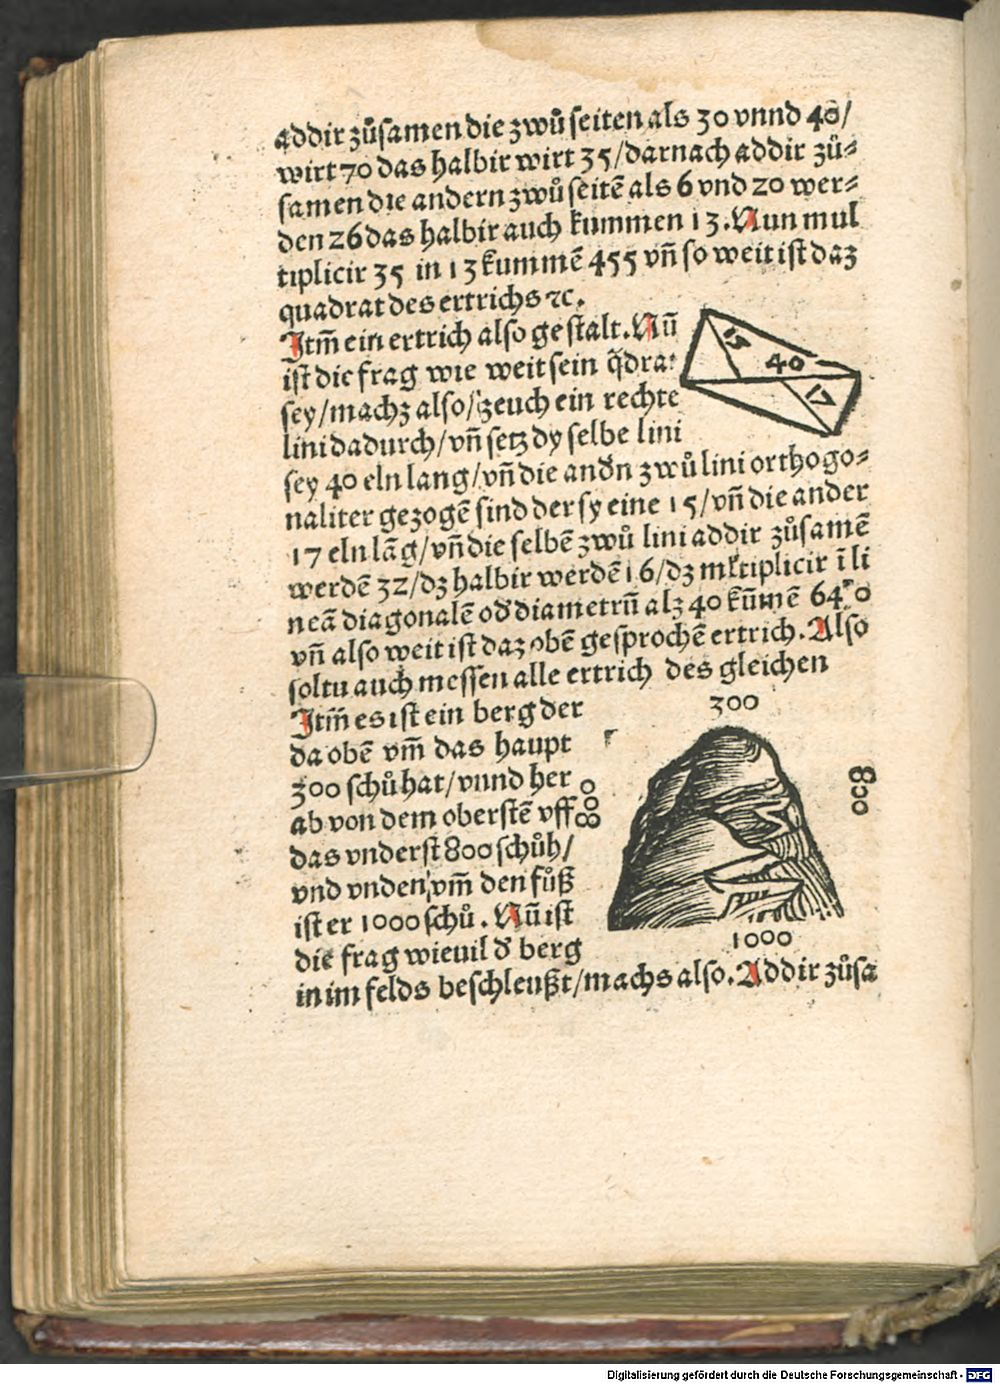 addir zůsamen die zwů seiten als 30 vnnd 40/
wirt 70 das halbir wirt 35/darnach addir zů⸗
samen die andern zwů seitē als 6 vnd 20 wer⸗
den 26 das halbir auch kummen 13. Nun mul
tiplicir 35 in 13 kummē 455 vn̄ so weit ist daz
quadrat des ertrichs ⁊c.
Itm̄ ein ertrich also gestalt. Nū
ist die frag wie weit sein q̄dra:
sey/machz also/zeuch ein rechte
lini dadurch/vn̄ setz dy selbe lini
sey 40 eln lang/vn̄ die andn zwů lini orthogo⸗
naliter gezogē sind der sy eine 15/vn̄ die ander
17 eln lāg/vn̄ die selbē zwů lini addir zůsamē
werdē 32/dz halbir werdē 16/dz multiplicir ī li
neā diagonalē od diametrū alz 40 kūmē 640
vn̄ also weit ist daz obē gesprochē ertrich. Also
soltu auch messen alle ertrich des gleichen
15
40
17
Itm̄ es ist ein berg der
da obē vm̄ das haupt
300 schů hat/vnnd her
ab von dem oberstē vff
das vnderst 800 schůh/
vnd vnden vm̄ den fůß
ist er 1000 schů. Nū ist
die frag wieuil d berg
in im felds beschleußt/machs also. Addir zůsa
300
800
800
1000
Digitalisierung gefördert durch die Deutsche Forschungsgemeinschaft - DFG